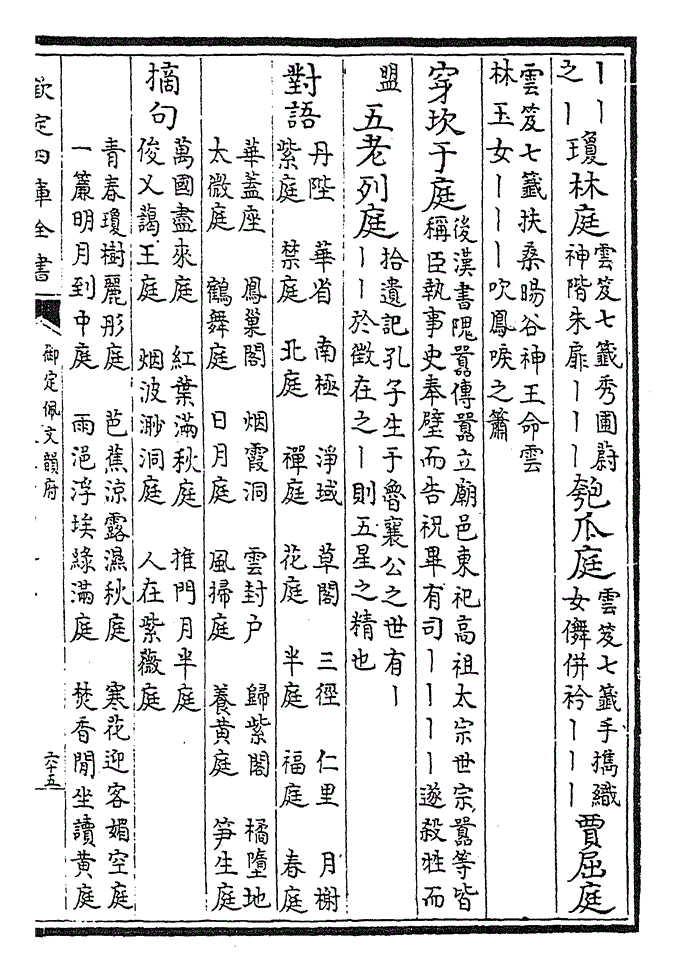 丨丨
之丨
瓊林庭
雲笈七籤秀圃蔚
神階朱扉丨丨丨
匏爪庭
雲笈七籤手擕織
女儛併衿丨丨丨
賈屈庭
雲笈七籤扶桑暘谷神王命雲
林玉女丨丨丨吹鳳唳之簫
穿坎于庭
後漢書隗囂傳囂立廟邑東祀高祖太宗世宗囂等皆
稱臣執事史奉璧而告祝畢有司丨丨丨丨遂殺牲而
盟
五老列庭
拾遺記孔子生于魯襄公之世有丨
丨丨於徵在之丨則五星之精也
對語
丹陛 華省 南極 淨域 草閣 三徑 仁里 月榭
紫庭 禁庭 北庭 禪庭 花庭 半庭 福庭 春庭
華蓋座 鳳巢閣 烟霞洞 雲封户 歸紫閣 橘墮地
太微庭 鶴舞庭 日月庭 風掃庭 養黄庭 笋生庭
摘句
萬國盡來庭 紅葉滿秋庭 推門月半庭
俊乂藹王庭 烟波渺洞庭 人在紫薇庭
青春瓊樹麗彤庭 芭蕉凉露濕秋庭 寒花迎客媚空庭
一簾明月到中庭 雨浥浮埃綠滿庭 焚香閒坐讀黄庭
欽定四庫全書
御定佩文韻府
六十五